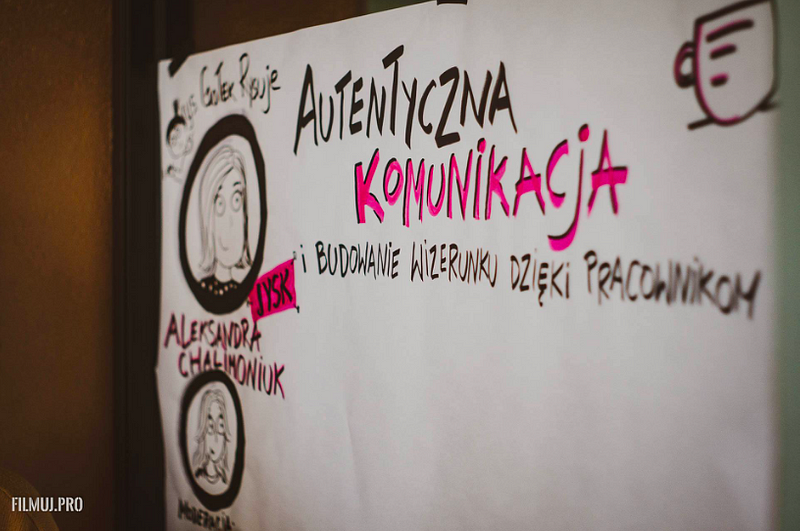 Rysuje
AUTENTYCZNA
KOMUNIKACJA
i BUDOWANIE WIZERUNKU DZIĘKI PRACOWNIKOM
JYSK
ALEKSANDRA
CHALIMONIUK
MODERACJA:
FILMUJ.PRO